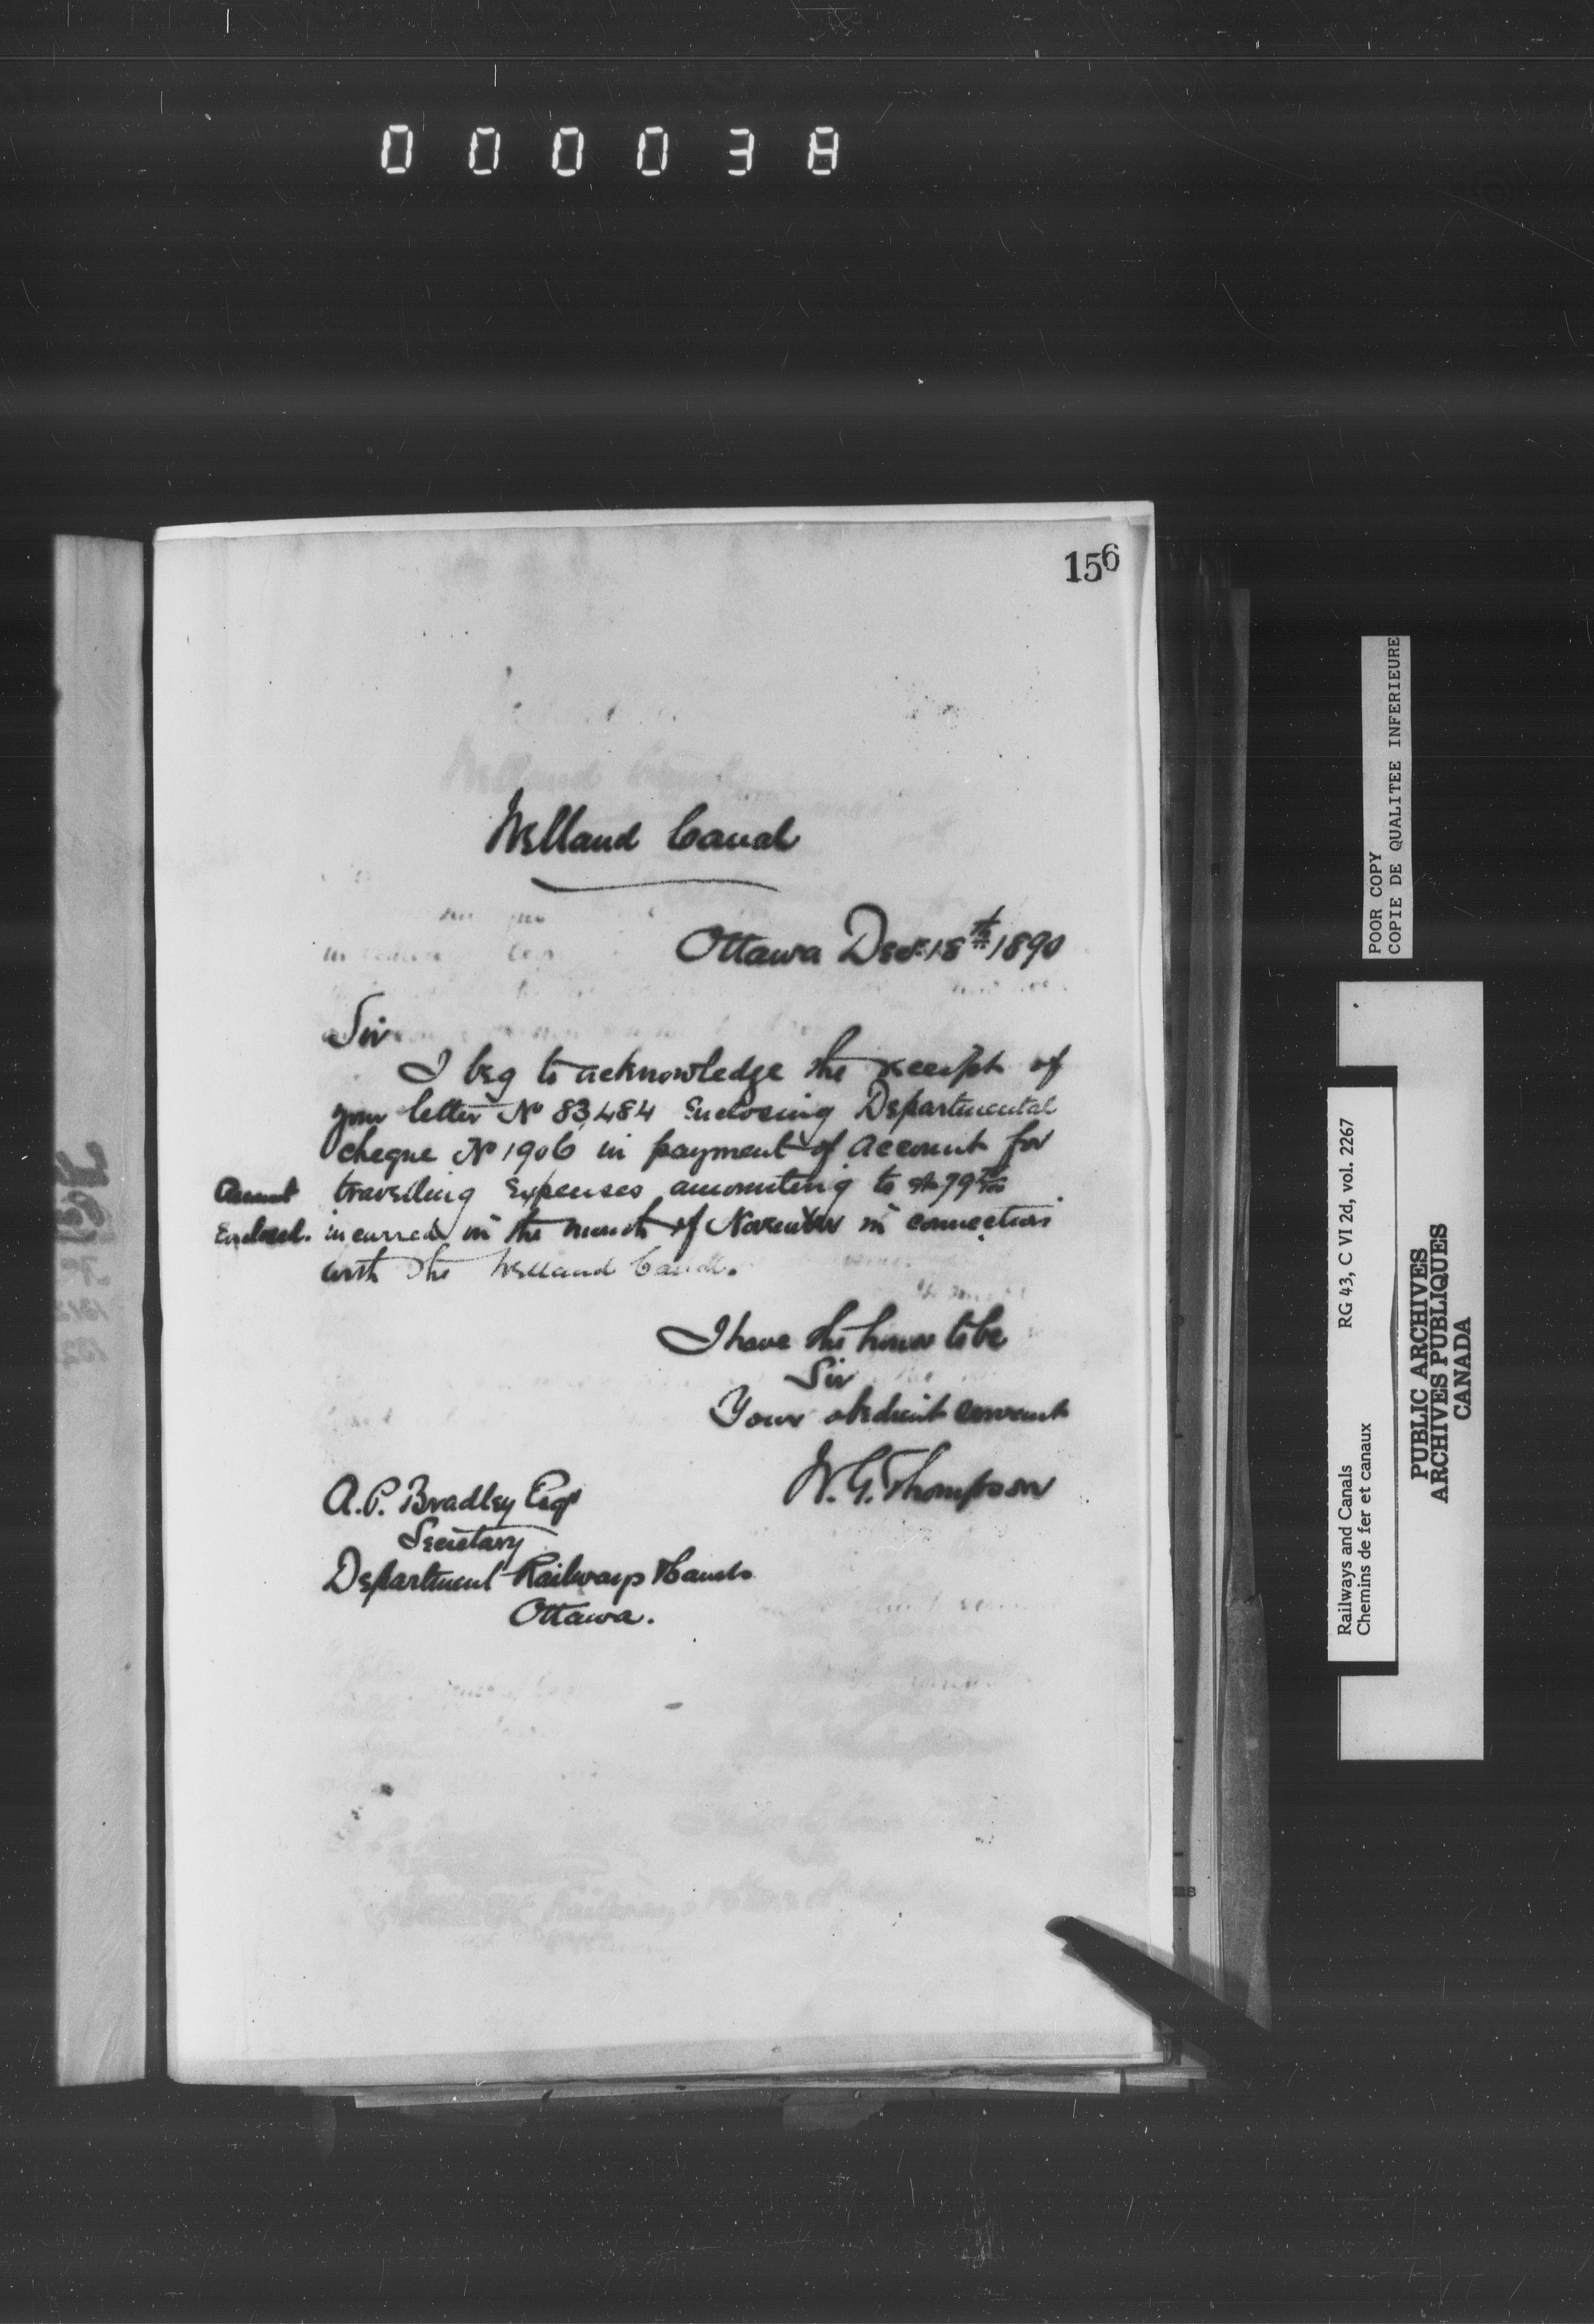 000038
156
Welland Canal
Ottawa Decr. 18th 1890
Sir
I beg to acknowledge the receipt of
your letter No 83,484 Enclosing Departmental
cheque No 1906 in payment of Account for
Account travelling Expenses amounting to
Enclosed. incurred in the month of November in connection
with the Welland Canal.
I have the honor to be
Sir
Your obedient servant
W. G. Thompson
A. P. Bradley Esqr
Secretary
Department Railways & Canals
Ottawa.
POOR COPY
COPIE DE QUALITEE INFERIEURE
Railways and Canals RG 43, C VI 2d, vol. 2267
Chemins de fer et canaux
PUBLIC ARCHIVES
ARCHIVES PUBLIQUES
CANADA